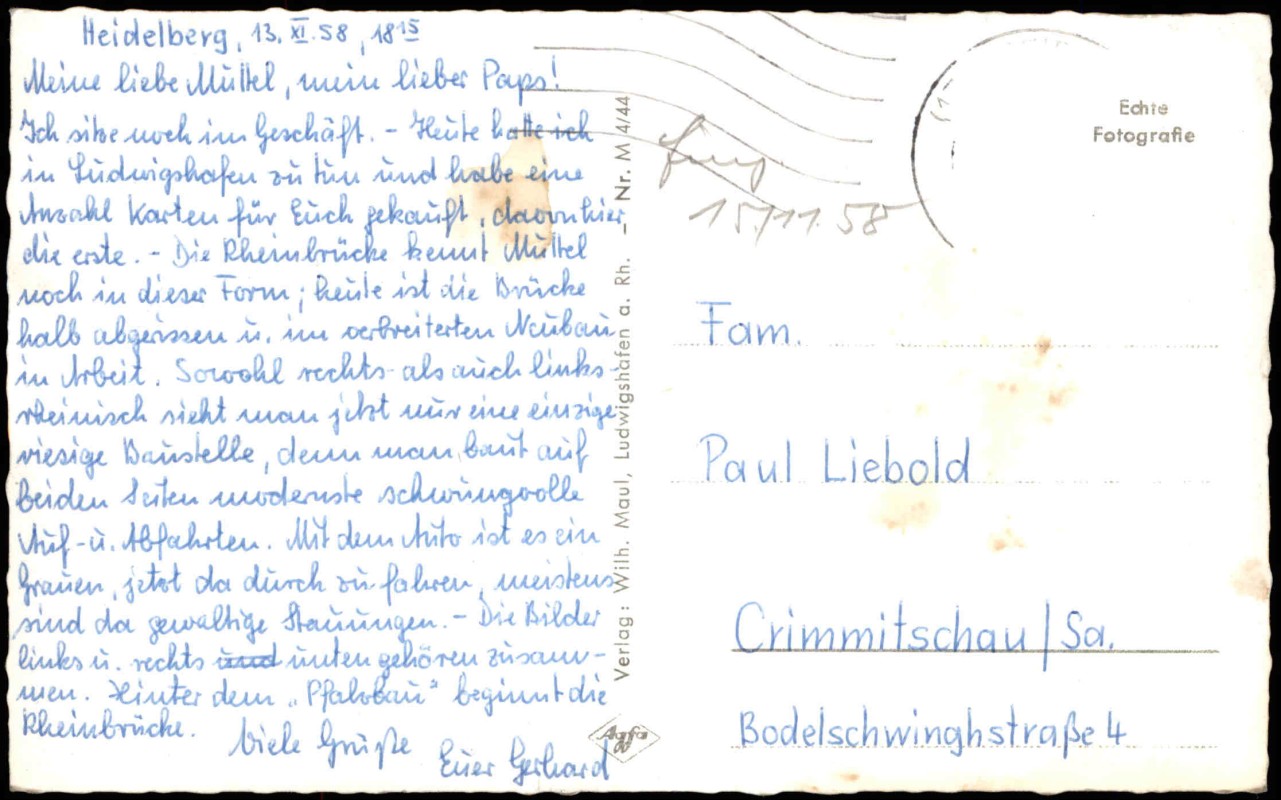 Heidelberg, 13. XI. 58, 18¹⁵
Meine liebe Muttel, mein lieber Paps!
Ich sitze noch im Geschäft. – Heute hatte ich
in Ludwigshafen zu tun und habe eine
Anzahl Karten für Euch gekauft, davon hier
die erste. – Die Rheinbrücke kennt Muttel
noch in dieser Form; heute ist die Brücke
halb abgerissen u. im verbreiterten Neubau
in Arbeit. Sowohl rechts- als auch links-
rheinisch sieht man jetzt nur eine einzige
riesige Baustelle, denn man baut auf
beiden Seiten modernste schwungvolle
Auf- u. Abfahrten. Mit dem Auto ist es ein
Grauen, jetzt da durch zu fahren, meistens
sind da gewaltige Stauungen. – Die Bilder
links u. rechts und unten gehören zusam-
men. Hinter dem „Pfalzbau" beginnt die
Rheinbrücke.
Viele Grüße
Euer Gerhard
Verlag: Wilh. Maul, Ludwigshafen a. Rh. – Nr. M 4/44
Agfa
Echte
Fotografie
15/11.58
Fam.
Paul Liebold
Crimmitschau/Sa.
Bodelschwinghstraße 4